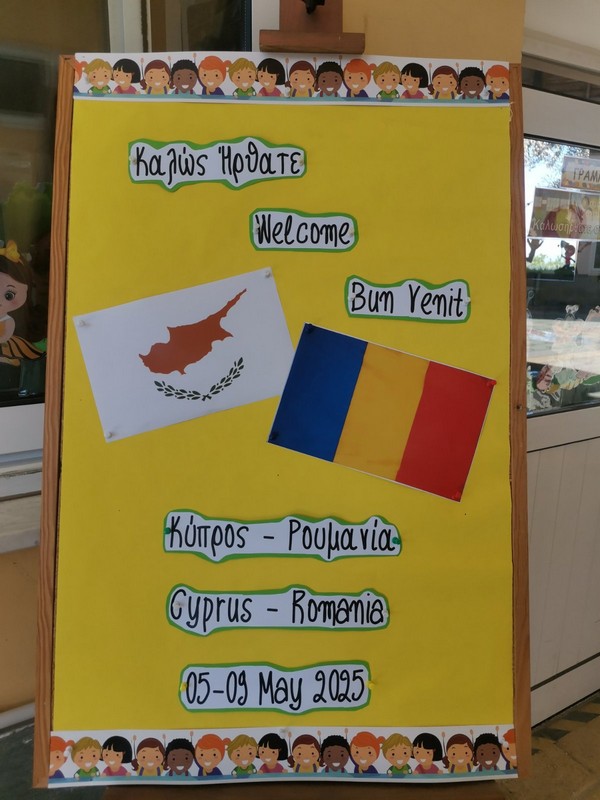 Καλώς Ήρθατε
Welcome
Bun Venit
Κύπρος - Ρουμανία
Cyprus - Romania
05-09 May 2025